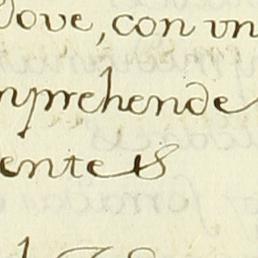 dove, con un
mprehende
ente &